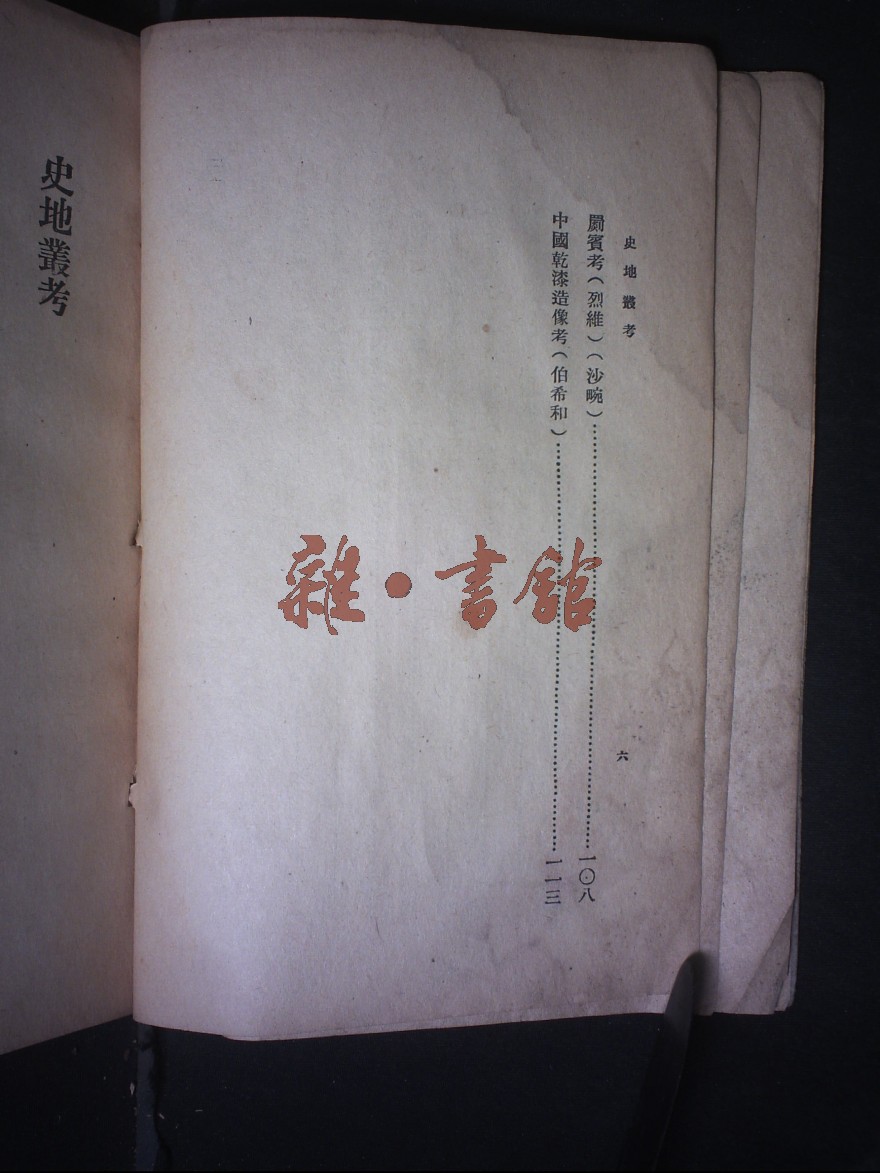 史地叢考 六
罽賓考（烈維）（沙畹）……一〇八
中國乾漆造像考（伯希和）……一一三
雜·書館
史地叢考